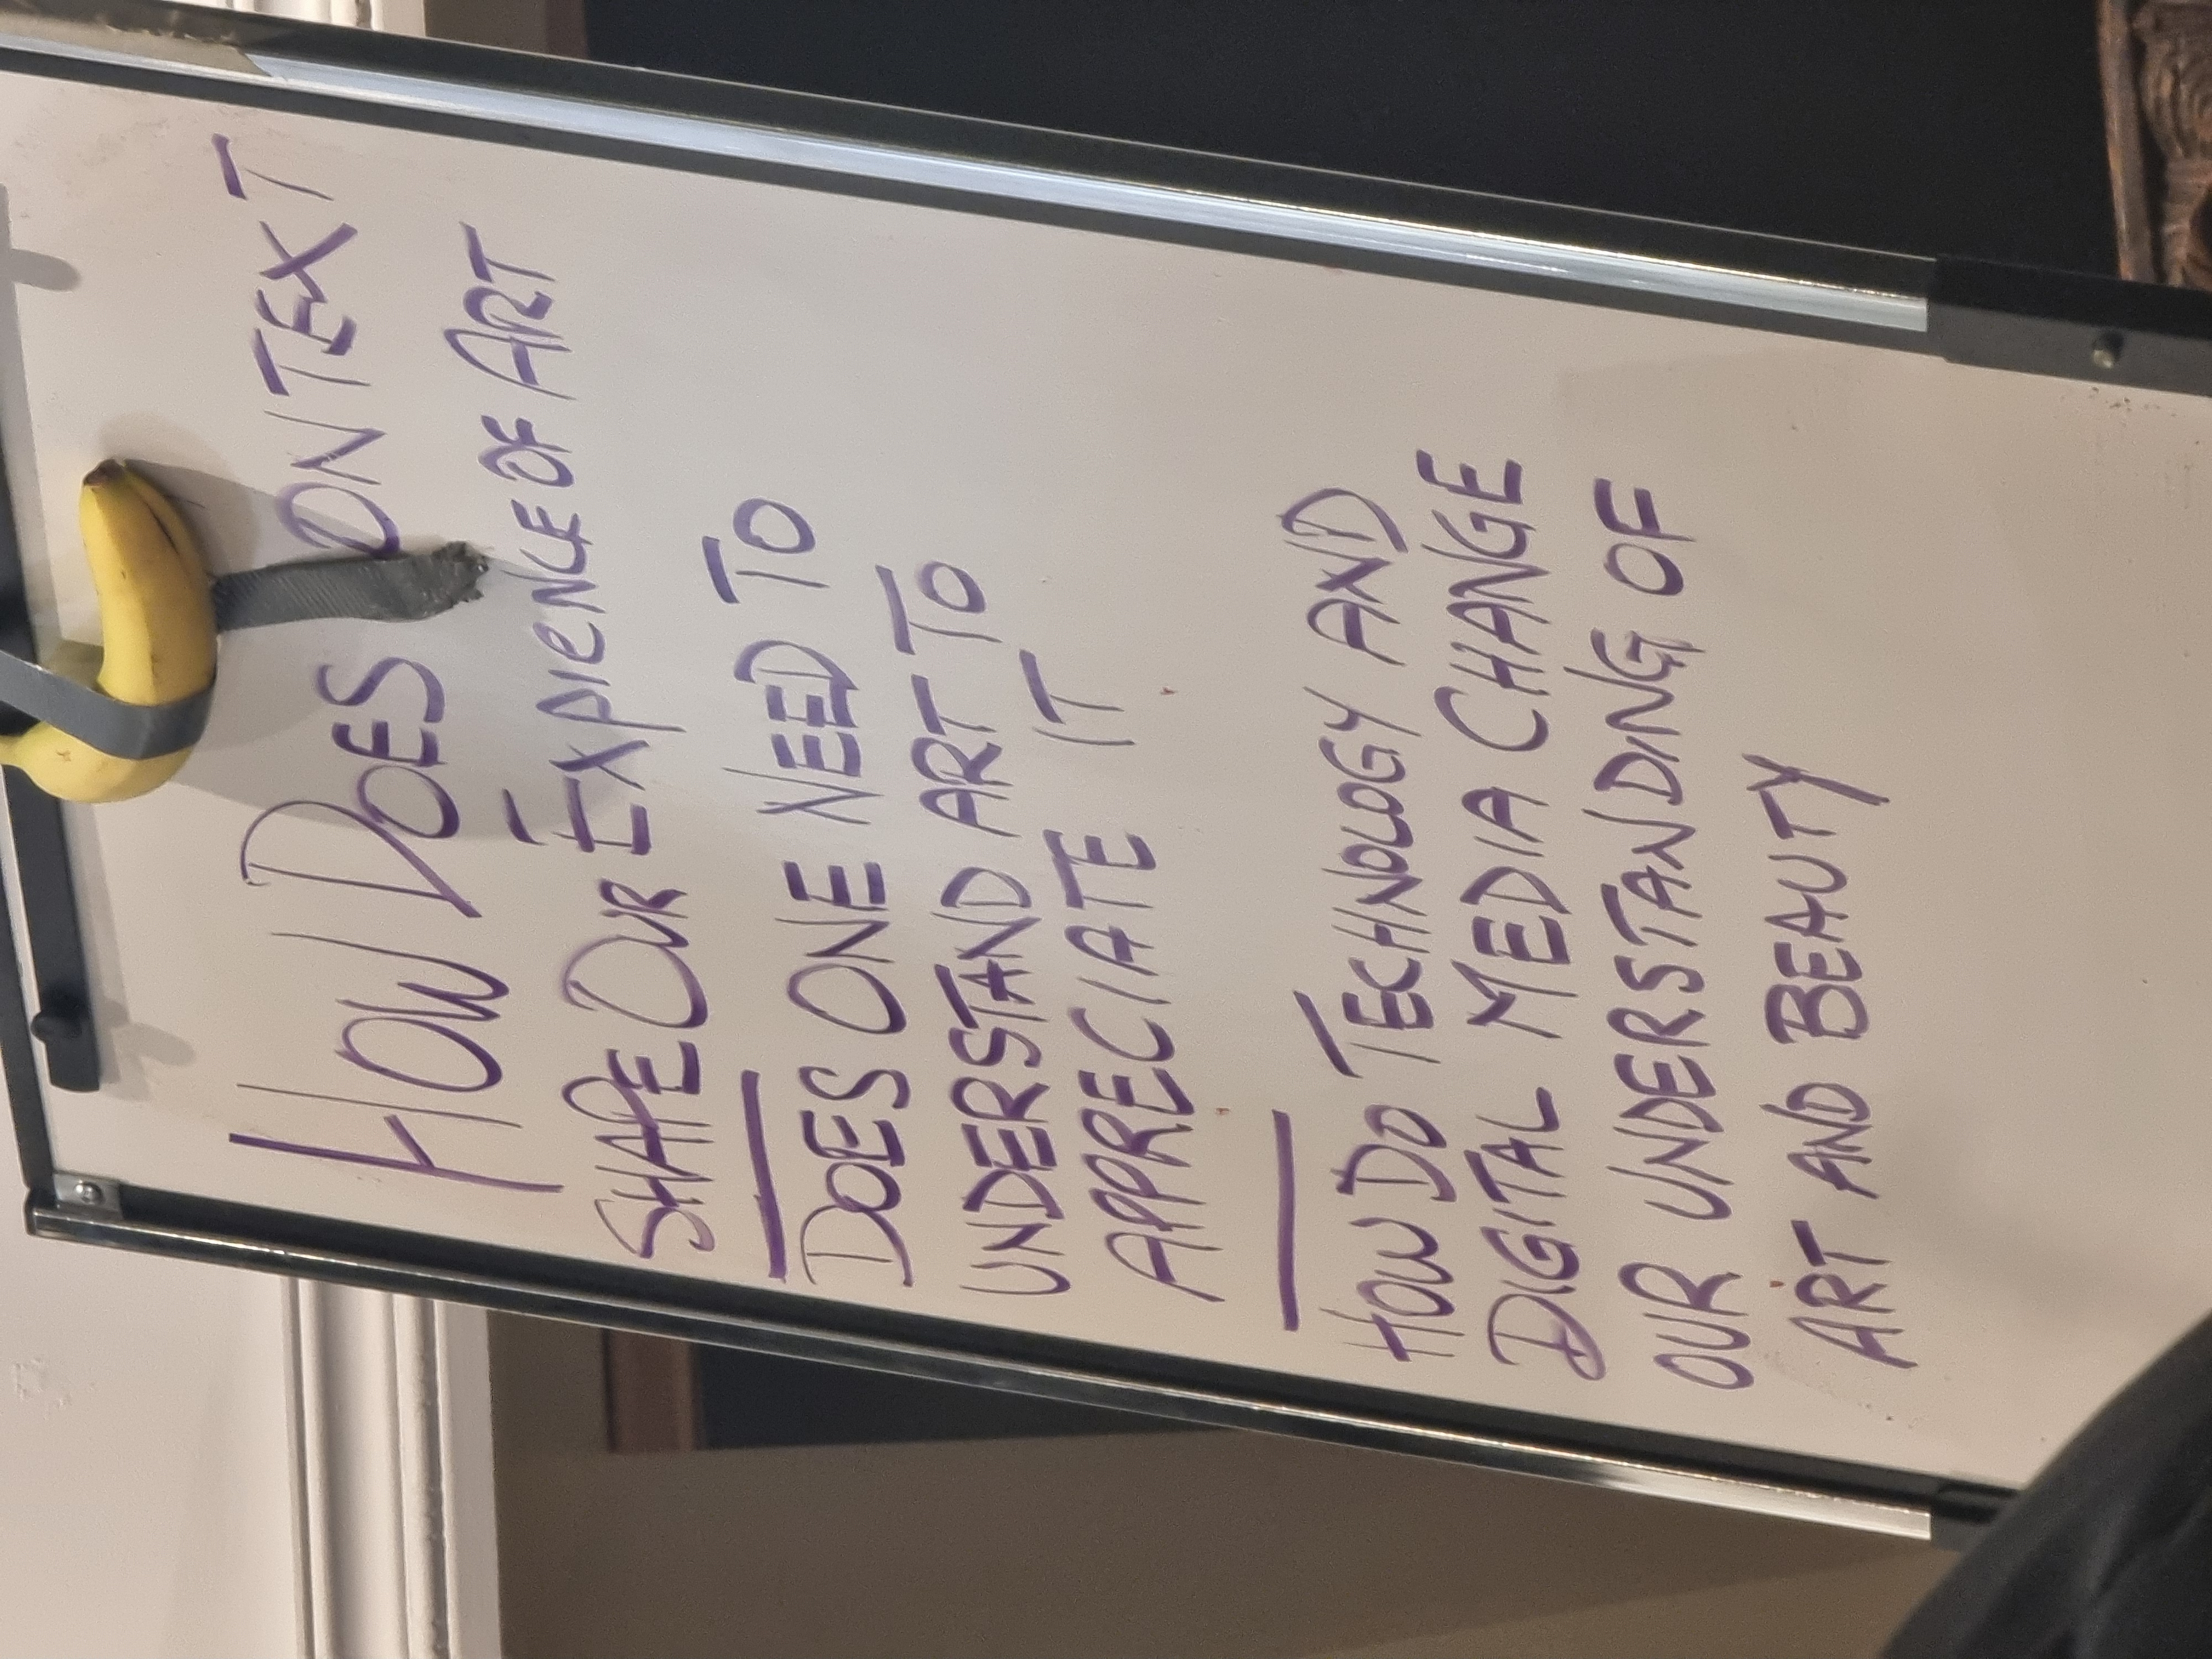 HOW DOES CONTEXT
SHAPE OUR EXPIENCE OF ART
DOES ONE NEED TO
UNDERSTAND ART TO
APPRECIATE IT
HOW DO TECHNOLOGY AND
DIGITAL MEDIA CHANGE
OUR UNDERSTANDING OF
ART AND BEAUTY